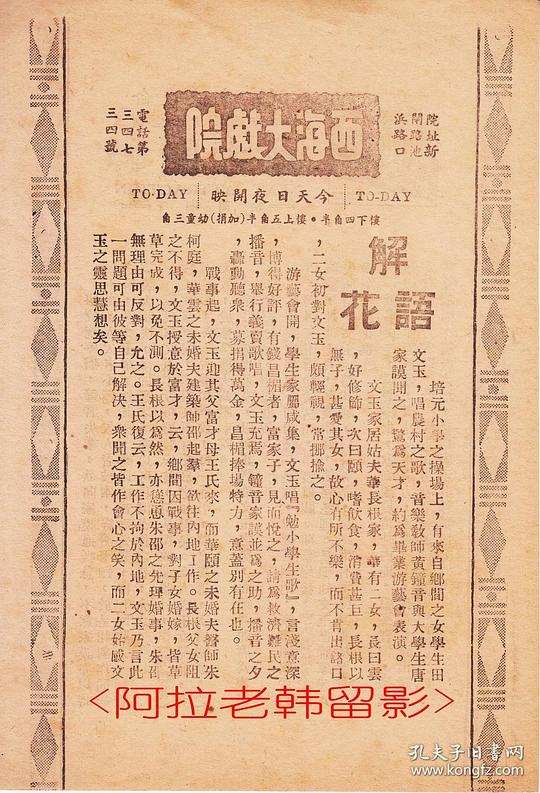 院址新
閘路池
浜路口
西海大戲院
電話第
三四七
三四號
TO-DAY 今天日夜開映 TO-DAY
樓下四角半•樓上五角半(加捐)幼童三角
解語花
培元小學之操場上,有來自鄉間之女學生田
文玉,唱農村之歌,音樂敎師黃鐘音與大學生唐
家謨聞之,驚爲天才,約爲畢業游藝會表演。
文玉家居姑夫華長根家,華有二女,長曰雲
,好修飾,次曰頤,嗜飲食,消費甚巨,長根以
無子,甚愛其女,故心有所不樂,而不肯出諸口
,二女初對文玉,頗輕視,常揶揄之。
游藝會開,學生家屬咸集,文玉唱『勉小學生歌』,言淺意深
,博得好評,有錢昌楣者,富家子,見而悅之,請爲救濟難民之
播音,舉行義賣歌唱,文玉充焉,鐘音家謨並爲之助,播音之夕
,轟動聽衆,募捐得萬金,昌楣捧場特力,意蓋別有在也。
戰事起,文玉迎其父富才母王氏來,而華頤之未婚夫醫師朱
柯庭,華雲之未婚夫建築師邵起羣,欲往內地工作。長根父女阻
之不得,文玉授意於富才,云,鄉間因戰事,對子女婚嫁,皆草
草完成,以免不測。長根以爲然,亦慫恿朱邵之先理婚事,朱邵
無理由可反對,允之。王氏復云,工作不拘於內地,文玉乃言此
一問題可由彼等自己解決,衆聞之皆作會心之笑,而二女始感文
玉之靈思慧想矣。
<阿拉老韩留影>
孔夫子旧书网
www.kongfz.com